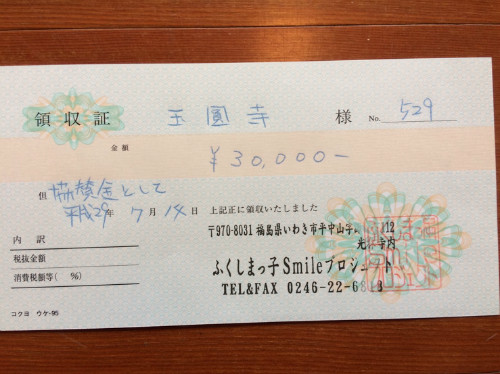 領収証 玉圓寺 様 No. 529
金額 ¥30,000-
但 協賛金として
平成29年7月14日 上記正に領収いたしました
内訳
税抜金額
消費税額等( %)
〒970-8031 福島県いわき市平中山字 12
光 寺内
ふくしまっ子Smileプロジェクト
TEL&FAX 0246-22-6
コクヨ ウケ-95